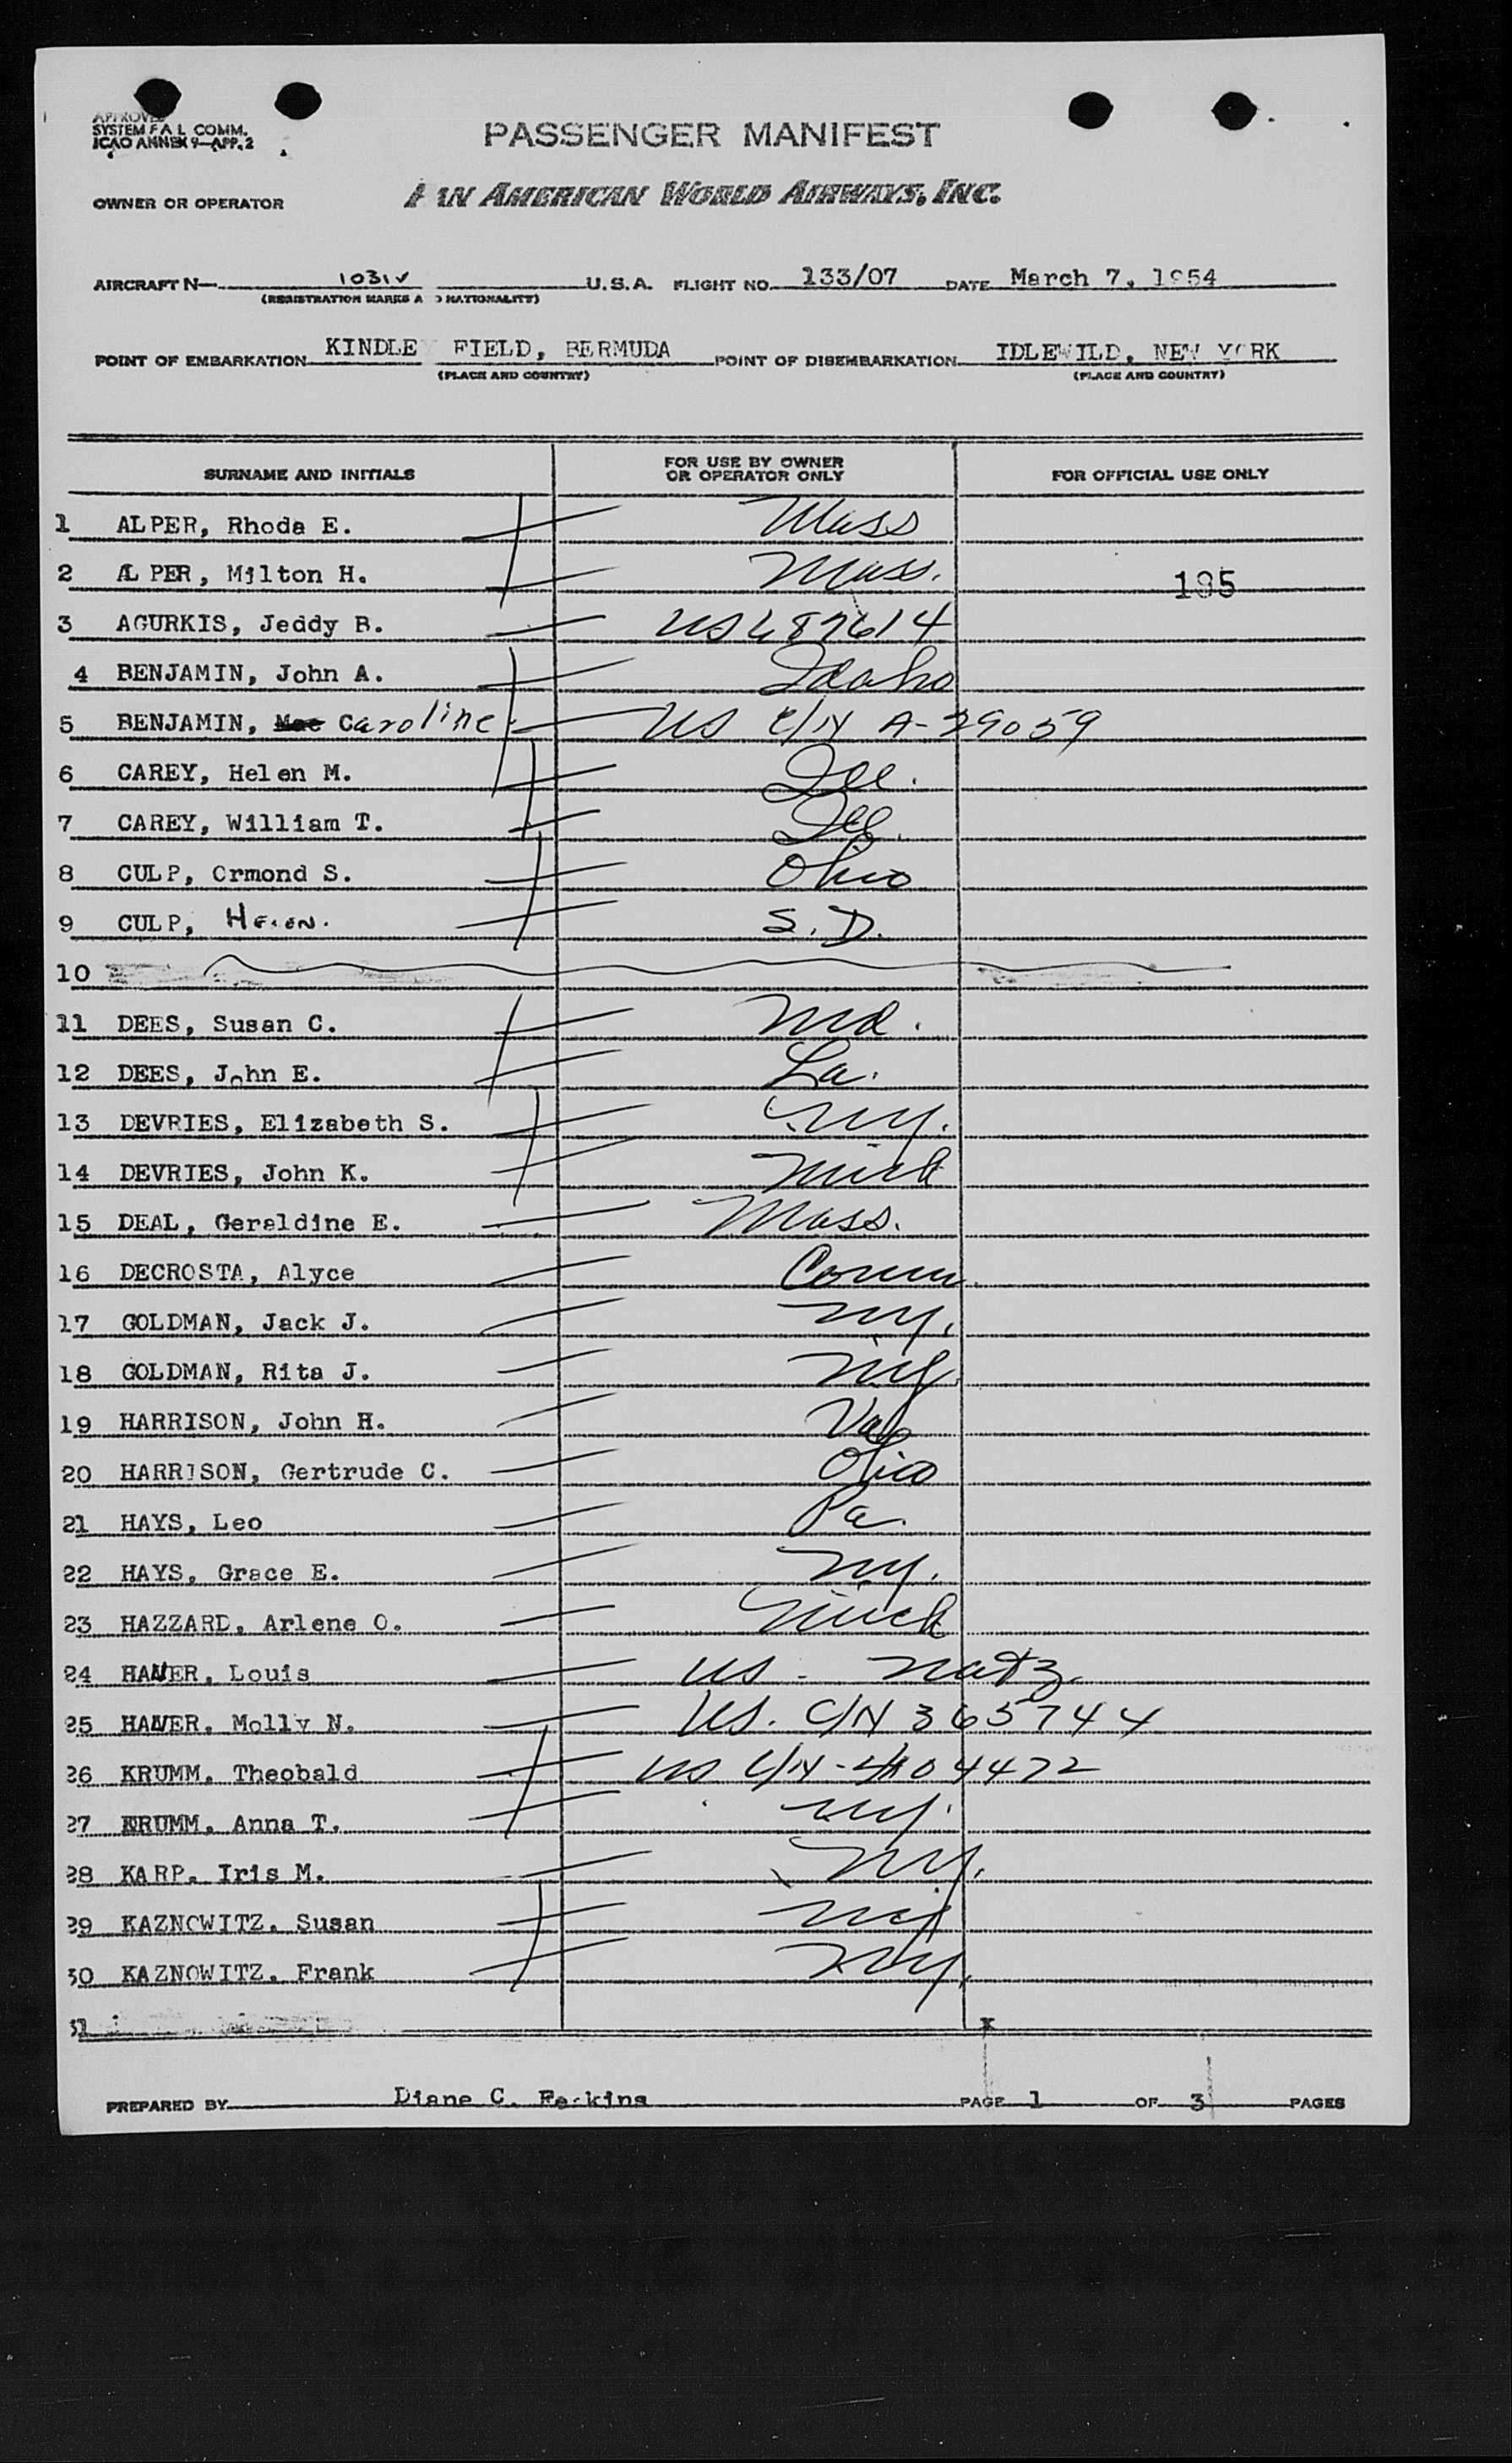 APPROVED
SYSTEM F A L COMM.
ICAO ANNEX 9—APP. 2
PASSENGER MANIFEST
OWNER OR OPERATOR PAN AMERICAN WORLD AIRWAYS, INC.
AIRCRAFT N— 1031V U.S.A. FLIGHT NO. 133/07 DATE March 7, 1954
(REGISTRATION MARKS AND NATIONALITY)
POINT OF EMBARKATION KINDLEY FIELD, BERMUDA POINT OF DISEMBARKATION IDLEWILD, NEW YORK
(PLACE AND COUNTRY) (PLACE AND COUNTRY)
SURNAME AND INITIALS FOR USE BY OWNER OR OPERATOR ONLY FOR OFFICIAL USE ONLY
1 ALPER, Rhoda E. Mass
2 ALPER, Milton H. Mass. 195
3 AGURKIS, Jeddy B. US 687614
4 BENJAMIN, John A. Idaho
5 BENJAMIN, Mae Caroline US C/N A-29059
6 CAREY, Helen M. Ill.
7 CAREY, William T. Ill.
8 CULP, Ormond S. Ohio
9 CULP, HELEN. S. D.
10
11 DEES, Susan C. Md.
12 DEES, John E. La.
13 DEVRIES, Elizabeth S. NY.
14 DEVRIES, John K. Mich
15 DEAL, Geraldine E. Mass.
16 DECROSTA, Alyce Conn.
17 GOLDMAN, Jack J. NY.
18 GOLDMAN, Rita J. NY
19 HARRISON, John H. Va
20 HARRISON, Gertrude C. Ohio
21 HAYS, Leo Pa.
22 HAYS, Grace E. NY.
23 HAZZARD, Arlene O. Mich
24 HAUER, Louis US - Natz.
25 HAUER, Molly N. US. C/N 365744
26 KRUMM, Theobald US C/N
27 KRUMM, Anna T. NY.
28 KARP, Iris M. NY.
29 KAZNOWITZ, Susan NY
30 KAZNOWITZ, Frank NY.
31
PREPARED BY Diane C. Perkins PAGE 1 OF 3 PAGES